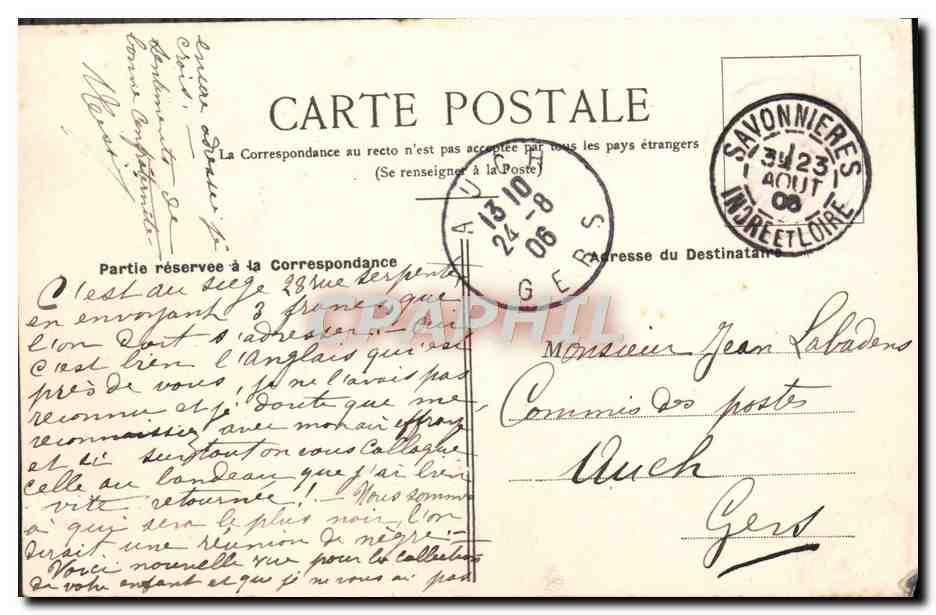 CARTE POSTALE
La Correspondance au recto n'est pas acceptée par tous les pays étrangers
(Se renseigner à la Poste)
SAVONNIERES
23
AOUT
06
INDRE ET LOIRE
AUCH
13 10
24-8
06
GERS
Partie réservée à la Correspondance
Adresse du Destinataire
C'est au siège 28 rue Serpente
en envoyant 3 francs que
l'on doit s'adresser. Oui
c'est bien l'Anglais qui est
près de vous, je ne l'avais pas
reconnu et je doute que me
reconnaissiez avec mon air effrayé
et si surtout on vous
celle au bandeau que j'ai bien
vite retournée!! - Nous sommes
à qui sera le plus noir, l'on
dirait une réunion de nègre. -
Voici nouvelle vue pour la collection
de votre enfant et que je ne vous ai pas
encore adressée je
crois. -
Sentiments de
bonne confraternité
Monsieur Jean Labadens
Commis des postes
Auch
Gers
CPAPHIL